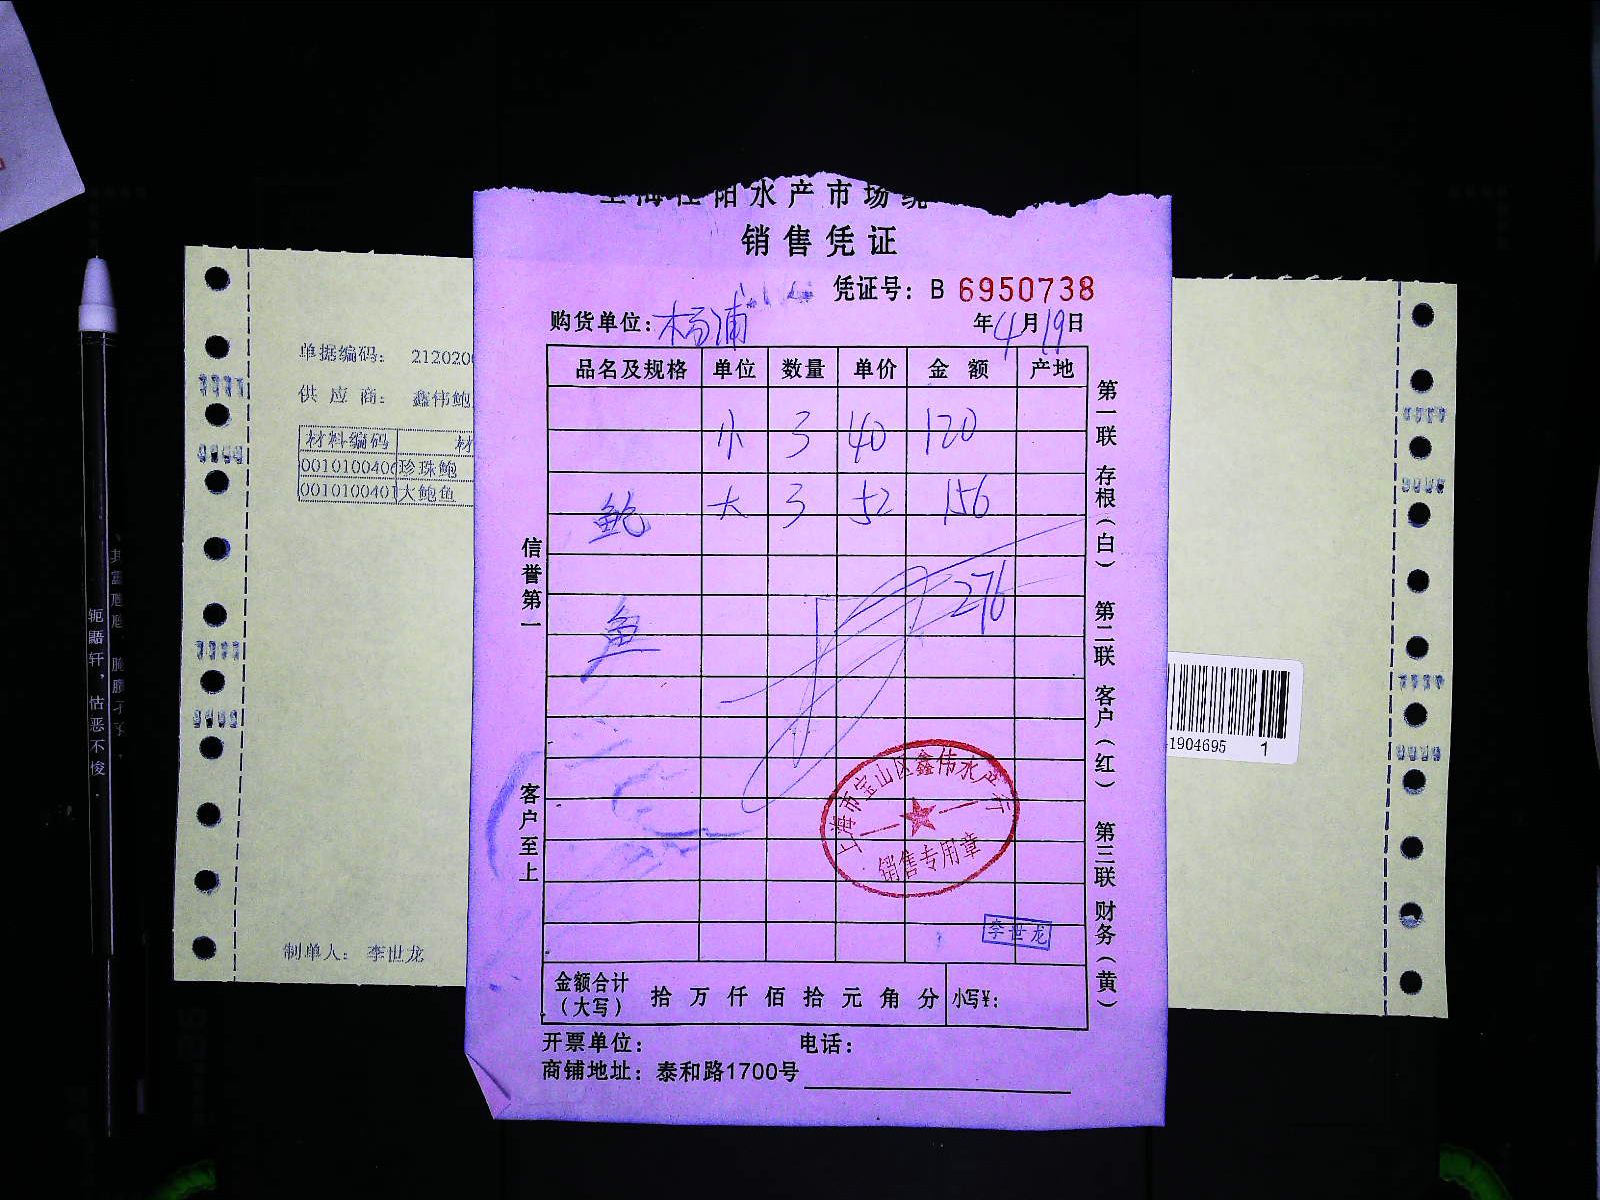 水产市场
销售凭证
凭证号：B 6950738
购货单位：杨浦 年4月19日
品名及规格 单位 数量 单价 金额 产地
小 3 40 120
鲍 大 3 52 156
276
鱼
信誉第一
客户至上
第一联 存根（白） 第二联 客户（红） 第三联 财务（黄）
上海市宝山区鑫伟水产行
销售专用章
李世龙
金额合计（大写） 拾万仟佰拾元角分 小写¥：
开票单位： 电话：
商铺地址：泰和路1700号
单据编码： 212020
供应商： 鑫伟鲍
材料编码 材
0010100406 珍珠鲍
0010100401 大鲍鱼
制单人： 李世龙
1904695 1
轭 轩，怙恶不悛.